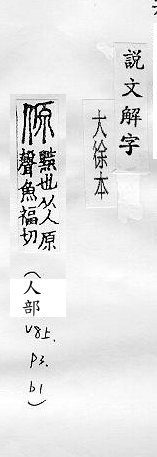 說文解字
大徐本
傆 黠也从人原
聲魚福切
(人部)
V85.
P3.
b1)